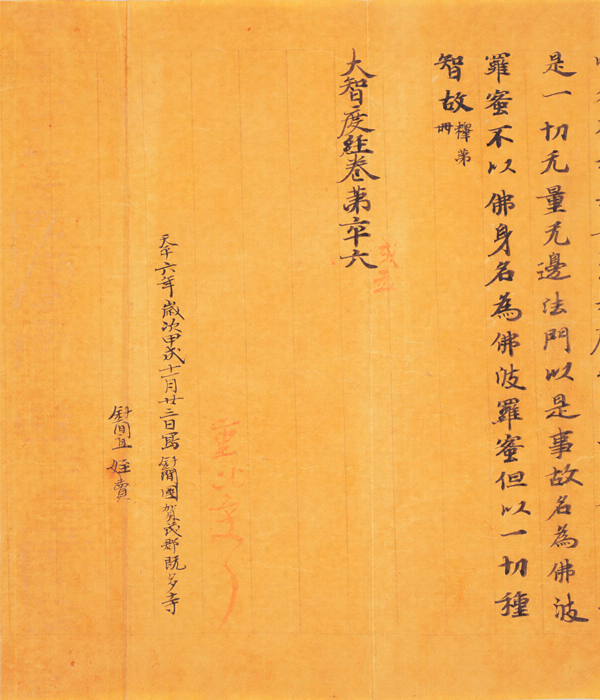 是一切无量无邊法門以是事故名為佛波
羅蜜不以佛身名為佛波羅蜜但以一切種
智故
釋第
卌
大智度経巻第六十六
天平六年歳次甲戌十一月廿三日寫針間國賀茂郡既多寺
針間直姪賣